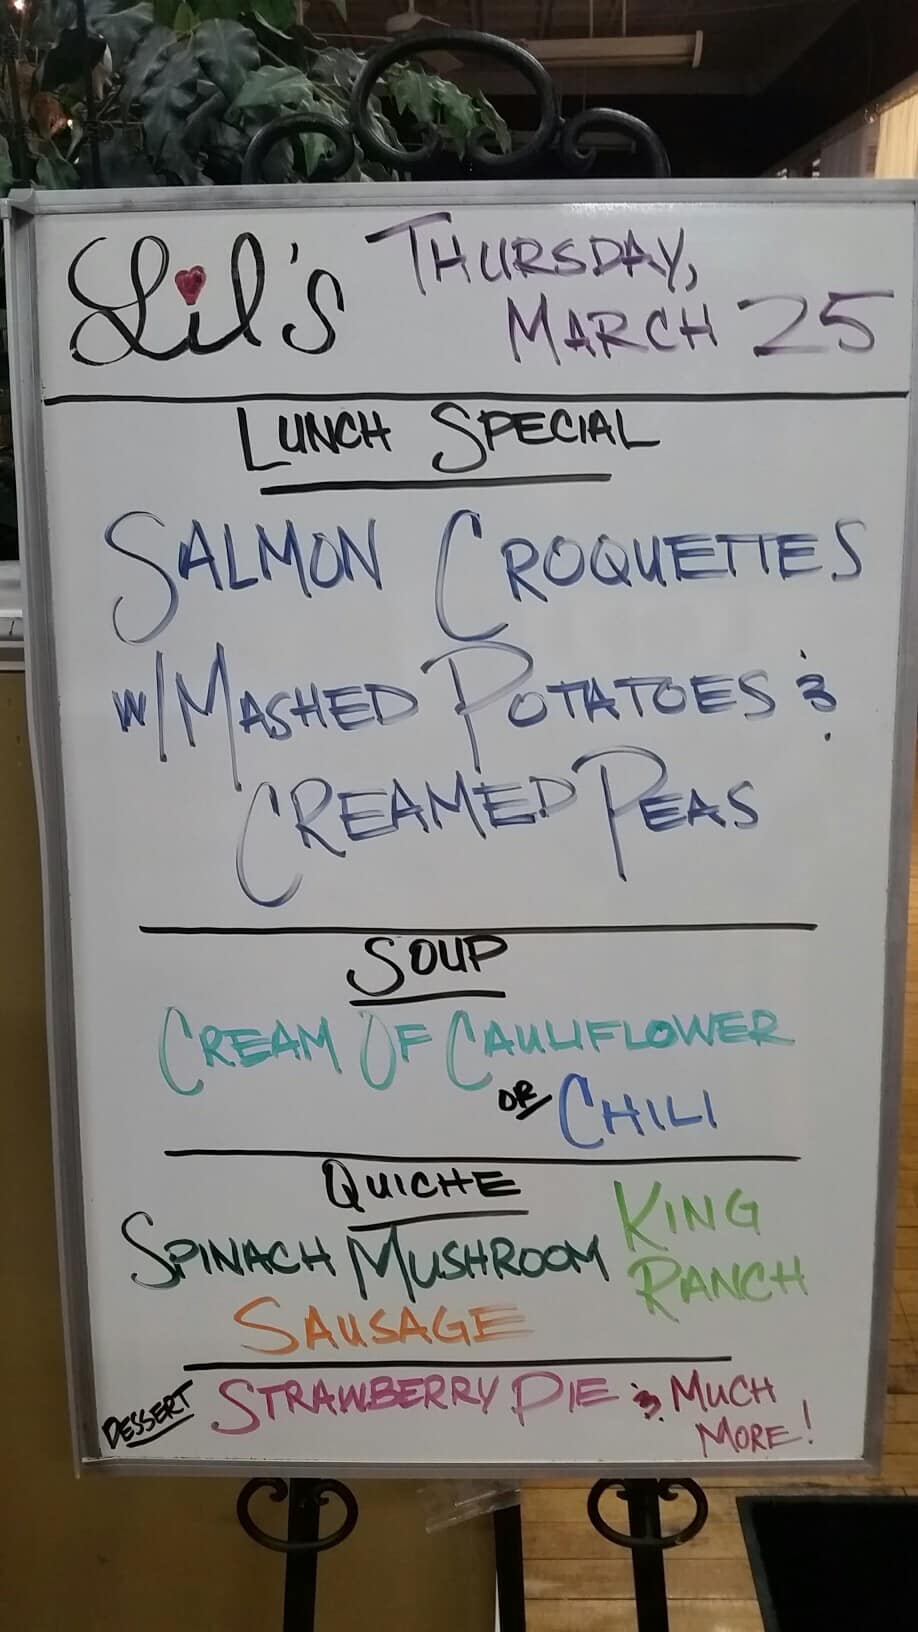 Lil's THURSDAY,
MARCH 25
LUNCH SPECIAL
SALMON CROQUETTES
W/MASHED POTATOES &
CREAMED PEAS
SOUP
CREAM OF CAULIFLOWER
OR CHILI
QUICHE
SPINACH MUSHROOM
KING
RANCH
SAUSAGE
DESSERT STRAWBERRY PIE & MUCH
MORE!